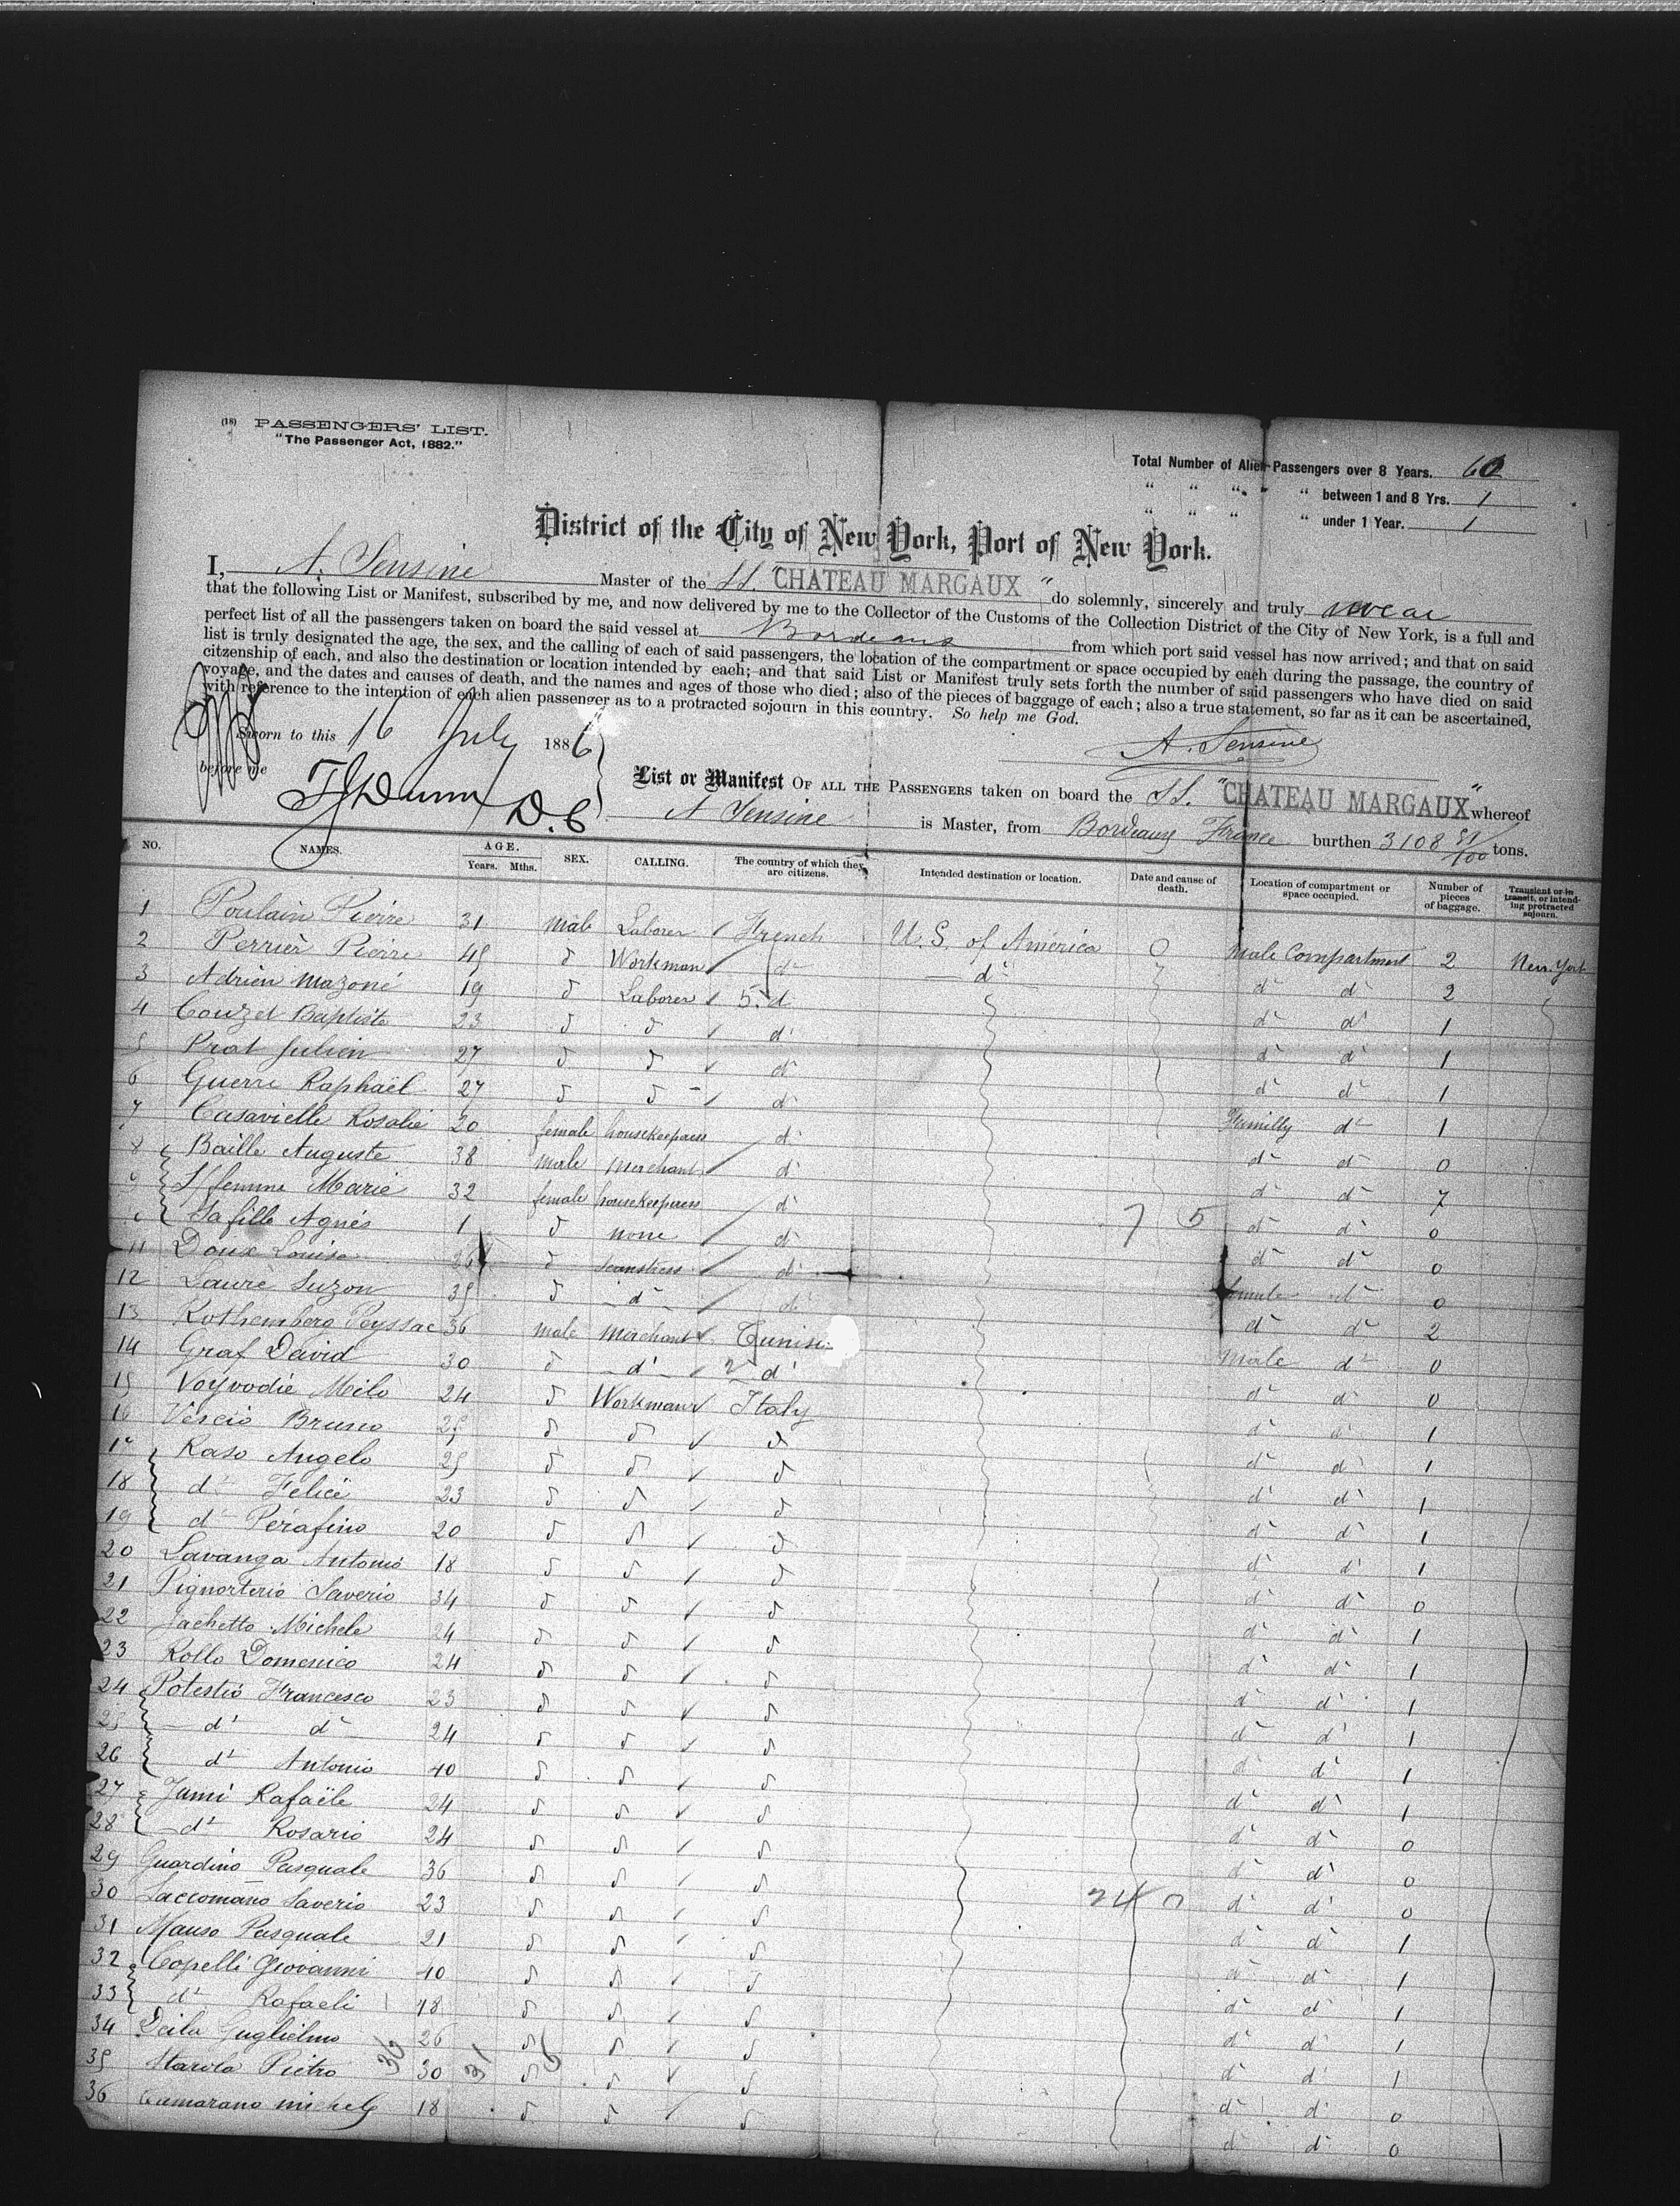 (18) PASSENGERS' LIST.
"The Passenger Act, 1882."
Total Number of Alien Passengers over 8 Years. 60
" " " " " between 1 and 8 Yrs. 1
" " " " under 1 Year. 1
District of the City of New York, Port of New York.
I, A. Sensine Master of the SS. "CHATEAU MARGAUX" do solemnly, sincerely and truly swear
that the following List or Manifest, subscribed by me, and now delivered by me to the Collector of the Customs of the Collection District of the City of New York, is a full and
perfect list of all the passengers taken on board the said vessel at Bordeaux from which port said vessel has now arrived; and that on said
list is truly designated the age, the sex, and the calling of each of said passengers, the location of the compartment or space occupied by each during the passage, the country of
citizenship of each, and also the destination or location intended by each; and that said List or Manifest truly sets forth the number of said passengers who have died on said
voyage, and the dates and causes of death, and the names and ages of those who died; also of the pieces of baggage of each; also a true statement, so far as it can be ascertained,
with reference to the intention of each alien passenger as to a protracted sojourn in this country. So help me God.
Sworn to this 16 July 1886
A. Sensine
before me
T J Dunn D.C
List or Manifest OF ALL THE PASSENGERS taken on board the SS. "CHATEAU MARGAUX" whereof
A Sensine is Master, from Bordeaux France burthen 3108 51/100 tons.
NO. NAMES. AGE. Years. Mths. SEX. CALLING. The country of which they are citizens. Intended destination or location. Date and cause of death. Location of compartment or space occupied. Number of pieces of baggage. Transient or in transit, or intending protracted sojourn.
1 Poulain Pierre 31 male Laborer French U. S. of America 0 Male Compartment 2 New-York
2 Perrier Pierre 45 d Workman d° d° d° d° 2
3 Adrien Mazoné 19 d Laborer 5 d d° d° 1
4 Couzet Baptiste 23 d d d° d° d° 1
5 Prat Julien 27 d d d° d° d° 1
6 Guerre Raphaël 27 d d d° Familly d° 1
7 Casavielle Rosalie 20 female housekeeperess d° d° d° 0
8 Baille Auguste 38 male Merchant d° d° d° 7
9 Sa femme Marie 32 female housekeeperess d° 7 5 d° d° 0
Sa fille Agnès 1 d none d° d° d° 0
11 Doux Louise 26 d Seamstress d° female d° 0
12 Laure Suzon 35 d d° d° d° d° 2
13 Rothemberg Peyssac 36 male Merchant Tunisi Male d° 0
14 Graf David 30 d d° 2 d° d° d° 0
15 Voyvodie Milo 24 d Workman Italy d° d° 1
16 Vescio Bruno 25 d d d d° d° 1
17 Raso Angelo 25 d d d d° d° 1
18 d° Felice 23 d d d d° d° 1
19 d° Perafino 20 d d d d° d° 1
20 Lavanga Antonio 18 d d d d° d° 0
21 Pignorterio Saverio 34 d d d d° d° 1
22 Jachetto Michele 24 d d d d° d° 1
23 Rollo Domenico 24 d d d d° d° 1
24 Potestio Francesco 23 d d d d° d° 1
25 d° d° 24 d d d d° d° 1
26 d° Antonio 40 d d d d° d° 1
27 Jumi Rafaële 24 d d d d° d° 0
28 d° Rosario 24 d d d d° d° 0
29 Guardino Pasquale 36 d d d 24 0 d° d° 0
30 Saccomano Saverio 23 d d d d° d° 1
31 Mauso Pasquale 21 d d d d° d° 1
32 Copelli Giovanni 40 d d d d° d° 1
33 d° Rafaeli 18 d d d d° d° 1
34 Deila Guglielmo 26 d d d d° d° 1
35 Starola Pietro 36 30 31 d 5 d d d° d° 0
36 Camarano michele 18 d d d d° d° 0